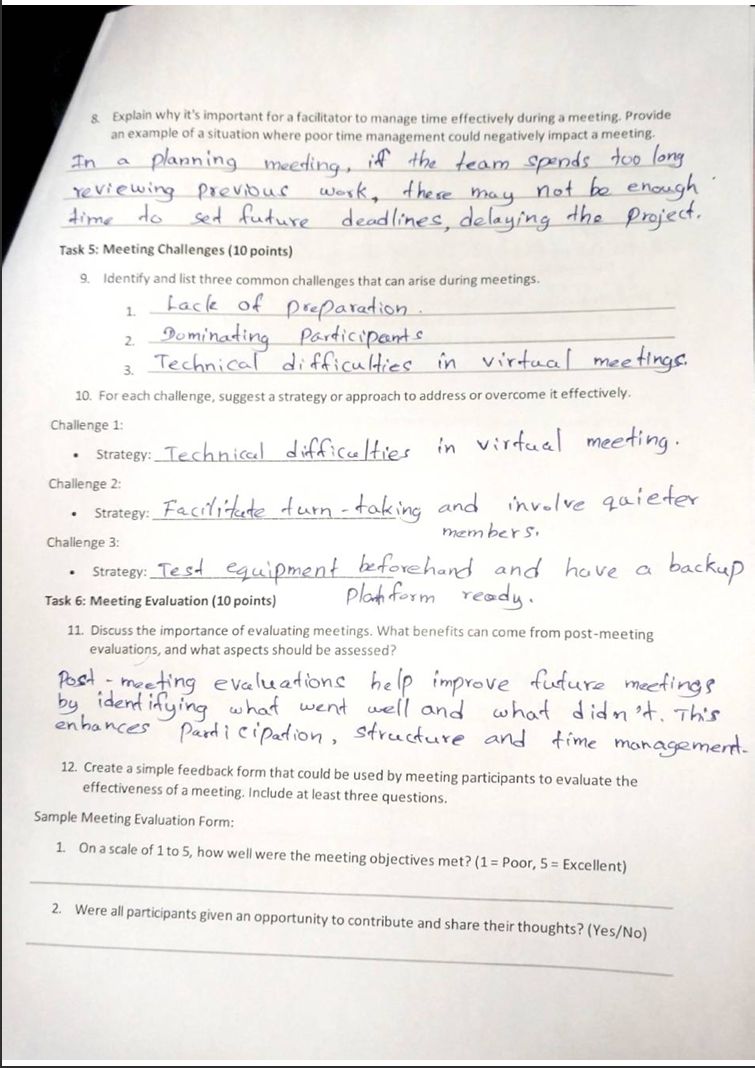 8. Explain why it's important for a facilitator to manage time effectively during a meeting. Provide
an example of a situation where poor time management could negatively impact a meeting.
In a planning meeting, if the team spends too long
reviewing previous work, there may not be enough
time to set future deadlines, delaying the project.
Task 5: Meeting Challenges (10 points)
9. Identify and list three common challenges that can arise during meetings.
1. Lack of preparation.
2. Dominating Participants
3. Technical difficulties in virtual meetings.
10. For each challenge, suggest a strategy or approach to address or overcome it effectively.
Challenge 1:
• Strategy: Technical difficulties in virtual meeting.
Challenge 2:
• Strategy: Facilitate turn-taking and involve quieter
members.
Challenge 3:
• Strategy: Test equipment beforehand and have a backup
Platform ready.
Task 6: Meeting Evaluation (10 points)
11. Discuss the importance of evaluating meetings. What benefits can come from post-meeting
evaluations, and what aspects should be assessed?
Post-meeting evaluations help improve future meetings
by identifying what went well and what didn't. This
enhances Participation, structure and time management.
12. Create a simple feedback form that could be used by meeting participants to evaluate the
effectiveness of a meeting. Include at least three questions.
Sample Meeting Evaluation Form:
1. On a scale of 1 to 5, how well were the meeting objectives met? (1 = Poor, 5 = Excellent)
2. Were all participants given an opportunity to contribute and share their thoughts? (Yes/No)